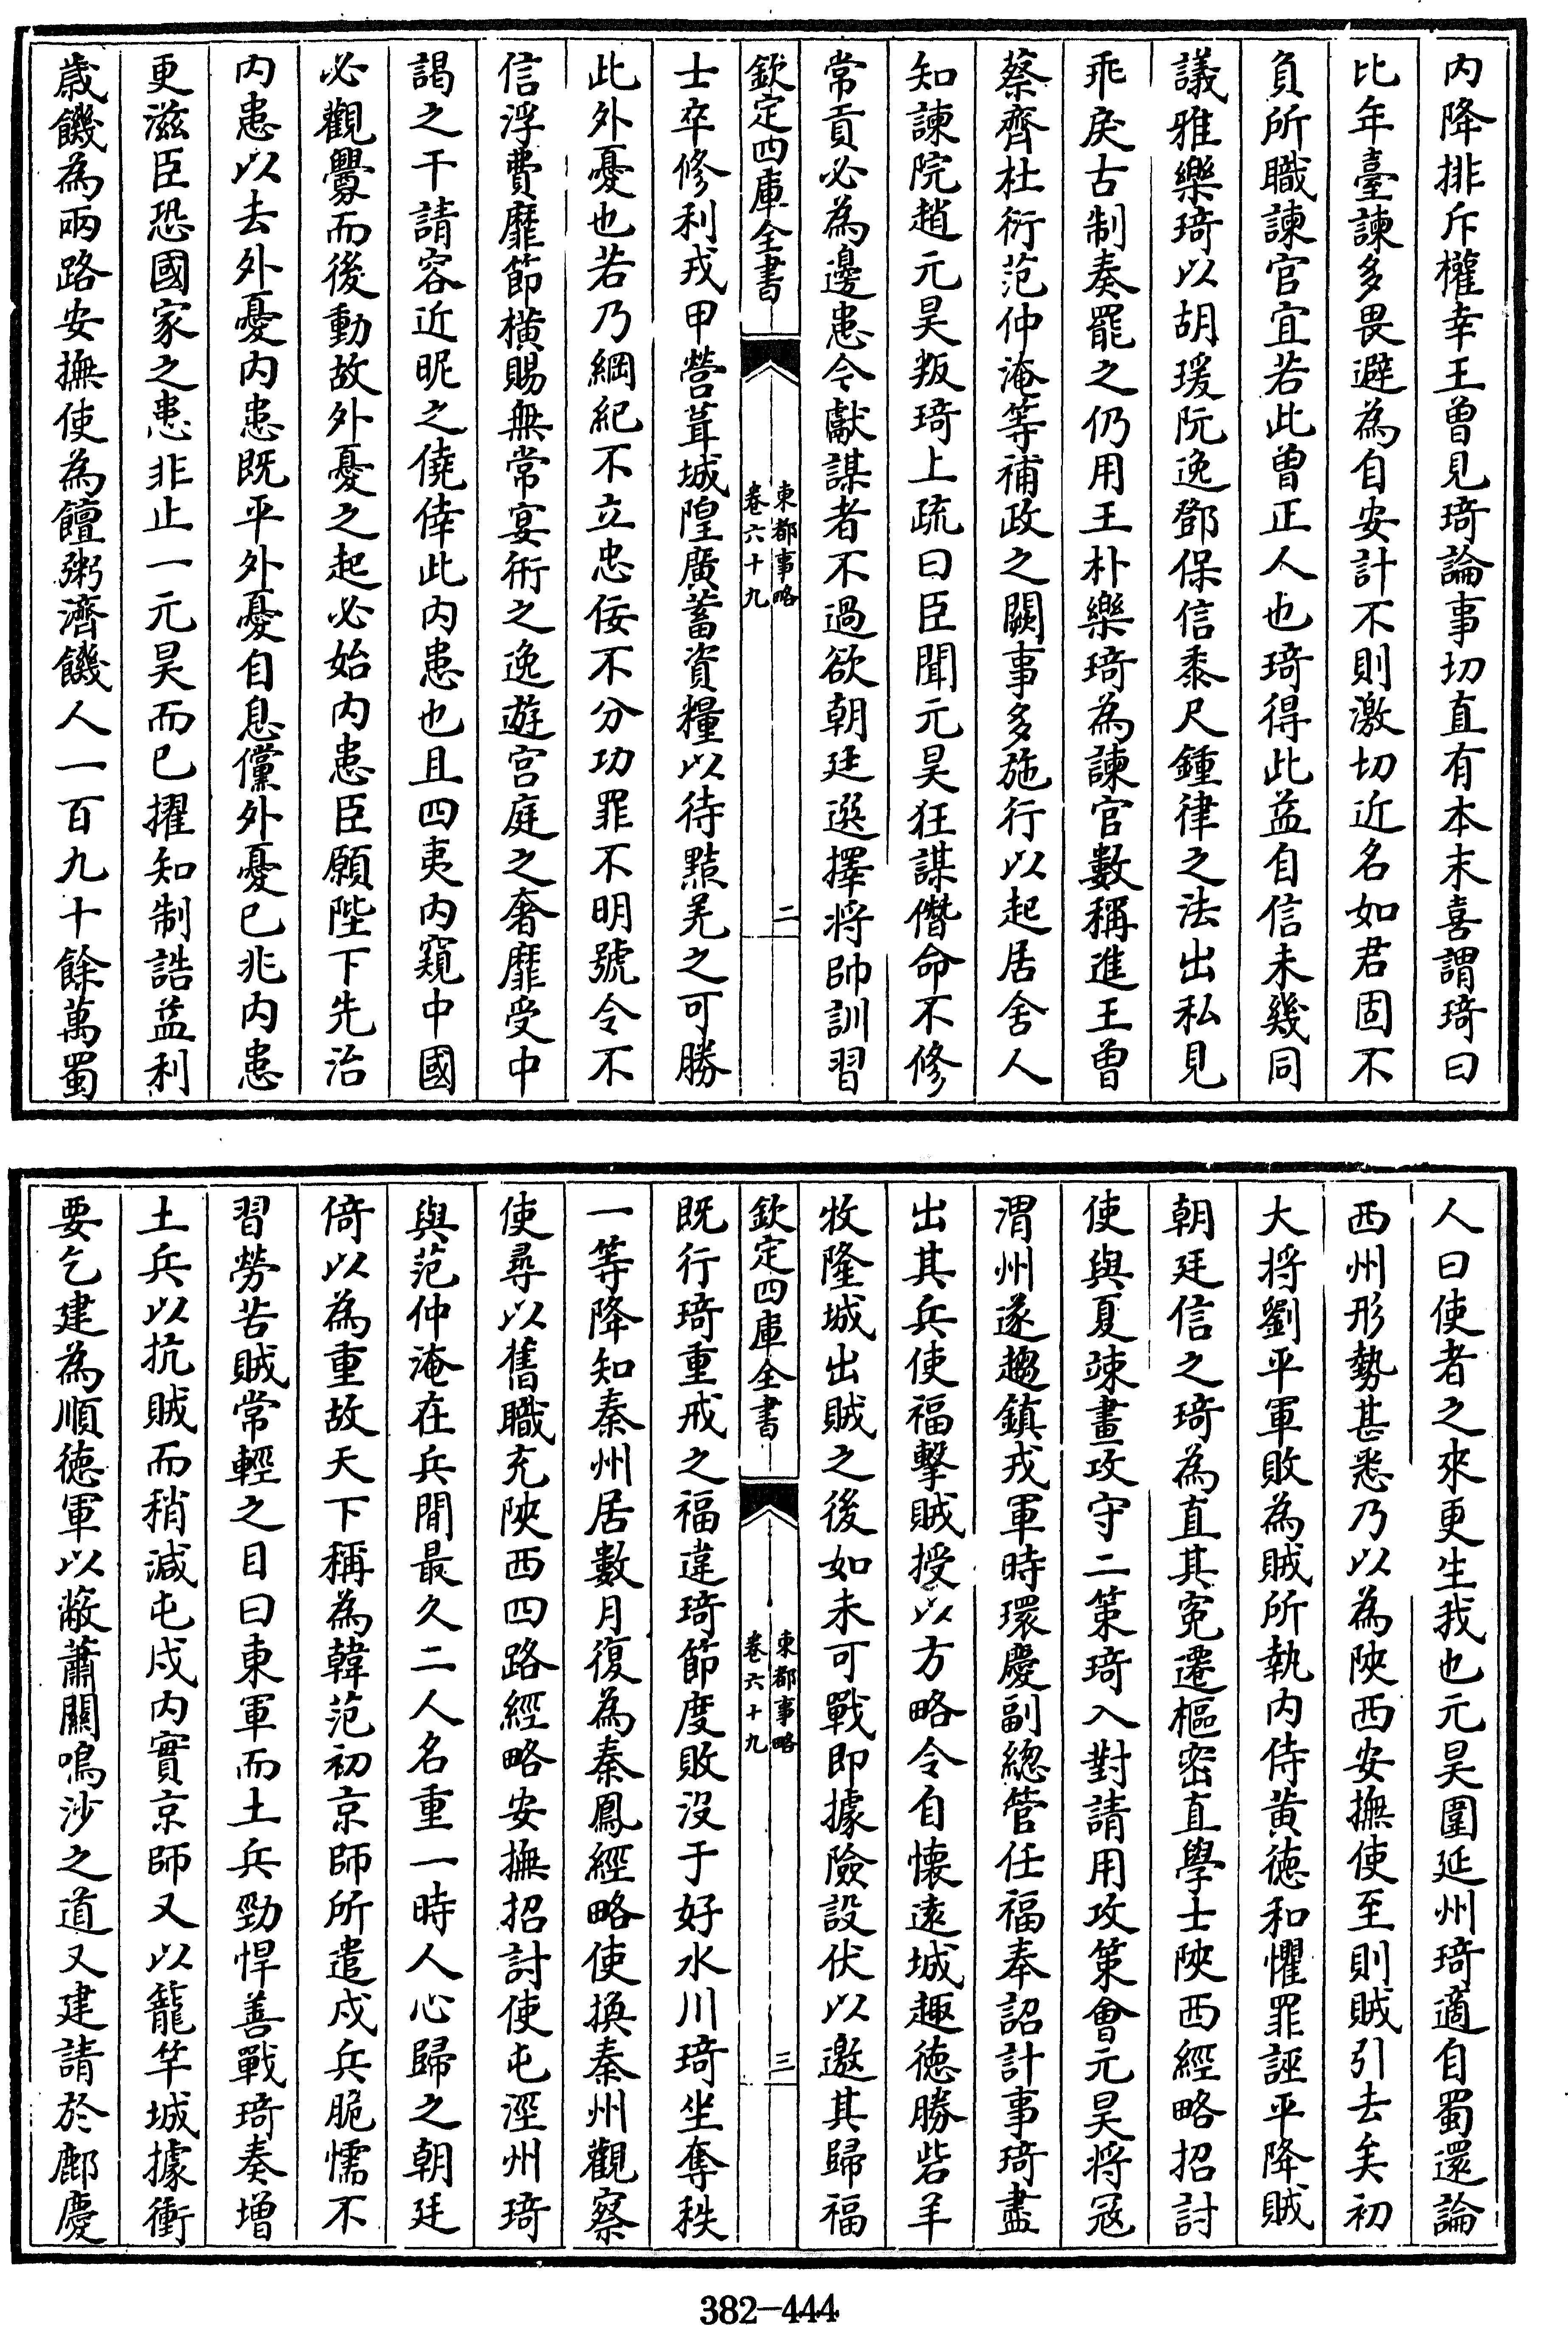 内降排斥權幸王曾見琦論事切直有本末喜謂琦曰
比年臺諫多畏避為自安計不則激切近名如君固不
負所職諫官宜若此曾正人也琦得此益自信未幾同
議雅樂琦以胡瑗阮逸鄧保信黍尺鍾律之法出私見
乖戾古制奏罷之仍用王朴樂琦為諫官數稱進王曾
蔡齊杜衍范仲淹等補政之闕事多施行以起居舍人
知諫院趙元昊叛琦上疏曰臣聞元昊狂謀僭命不修
常貢必為邊患今獻謀者不過欲朝廷選擇將帥訓習
欽定四庫全書
東都事略
卷六十九
二
士卒修利戎甲營葺城隍廣蓄資糧以待黠羌之可勝
此外憂也若乃綱紀不立忠佞不分功罪不明號令不
信浮費靡節橫賜無常宴衎之逸遊宫庭之奢靡受中
謁之干請容近昵之僥倖此内患也且四夷内窺中國
必觀釁而後動故外憂之起必始内患臣願陛下先治
内患以去外憂内患既平外憂自息儻外憂已兆内患
更滋臣恐國家之患非止一元昊而已擢知制誥益利
歲饑為兩路安撫使為饘粥濟饑人一百九十餘萬蜀
人曰使者之來更生我也元昊圍延州琦適自蜀還論
西州形勢甚悉乃以為陜西安撫使至則賊引去矣初
大將劉平軍敗為賊所執内侍黄德和懼罪誣平降賊
朝廷信之琦為直其寃遷樞密直學士陜西經略招討
使與夏竦畫攻守二策琦入對請用攻策會元昊將冦
渭州遂趨鎮戎軍時環慶副總管任福奉詔計事琦盡
出其兵使福擊賊授以方略令自懷遠城趣德勝砦羊
牧隆城出賊之後如未可戰即據險設伏以邀其歸福
欽定四庫全書
東都事略
卷六十九
三
既行琦重戒之福違琦節度敗沒于好水川琦坐奪秩
一等降知秦州居數月復為秦鳳經略使換秦州觀察
使尋以舊職充陜西四路經略安撫招討使屯涇州琦
與范仲淹在兵間最久二人名重一時人心歸之朝廷
倚以為重故天下稱為韓范初京師所遣戍兵脆懦不
習勞苦賊常輕之目曰東軍而土兵勁悍善戰琦奏增
土兵以抗賊而稍減屯戍内實京師又以籠竿城據衝
要乞建為順德軍以蔽蕭關鳴沙之道又建請於鄜慶
382-444